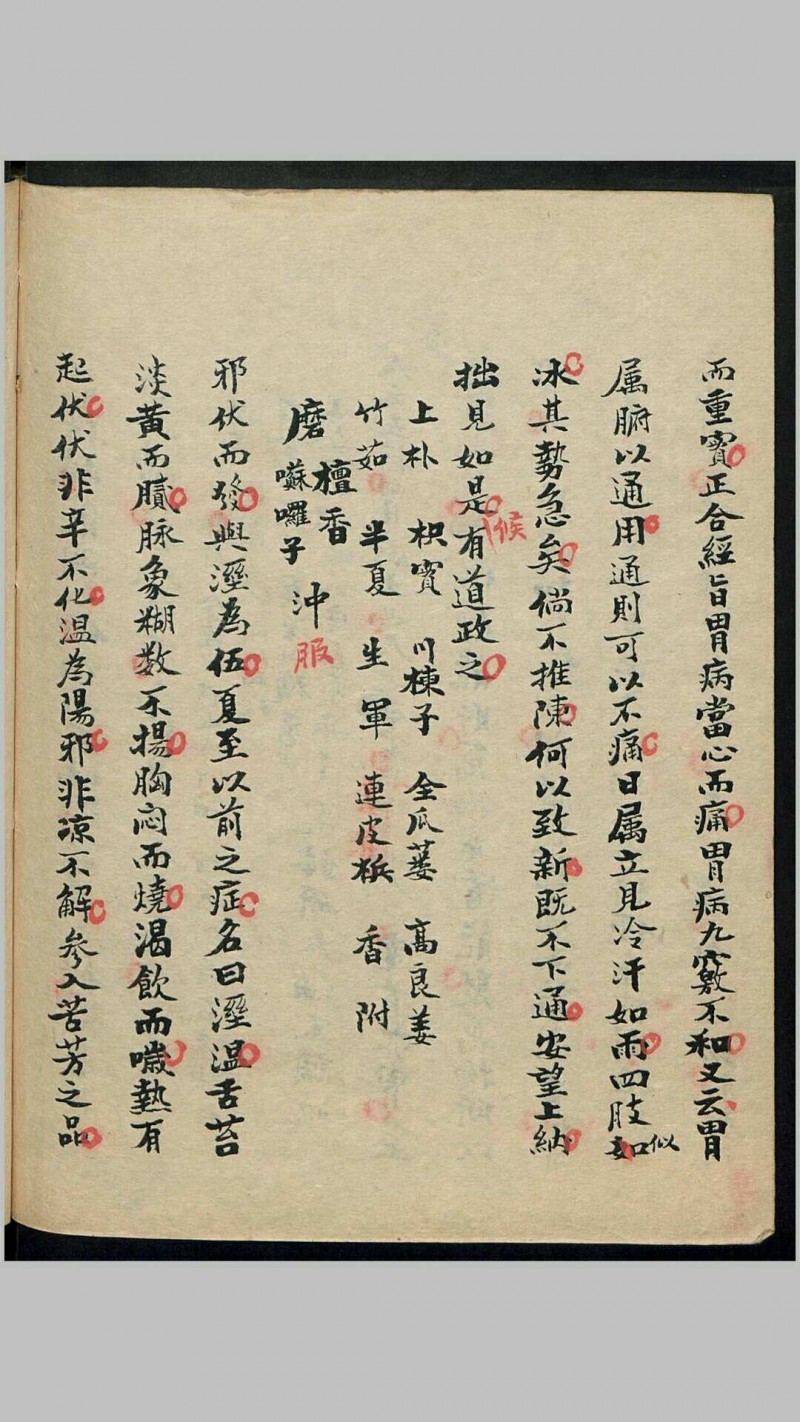 而重實正合經旨胃病當心而痛胃病九竅不和又云胃
属腑以通用通則可以不痛日属立見冷汗如雨四肢如似
冰其勢急矣倘不推陳何以致新既不下通安望上納
拙見如是候有道政之
上朴 枳實 川楝子 全瓜蒌 高良姜
竹茹 半夏 生軍 連皮梹 香附
磨檀香囌囉子沖服
邪伏而發與溼為伍夏至以前之症名曰溼温舌苔
淡黄而膩脉象糊数不揚胸闷而燒渴飲而噦熱有
起伏伏非辛不化温為陽邪非凉不解参入苦芳之品